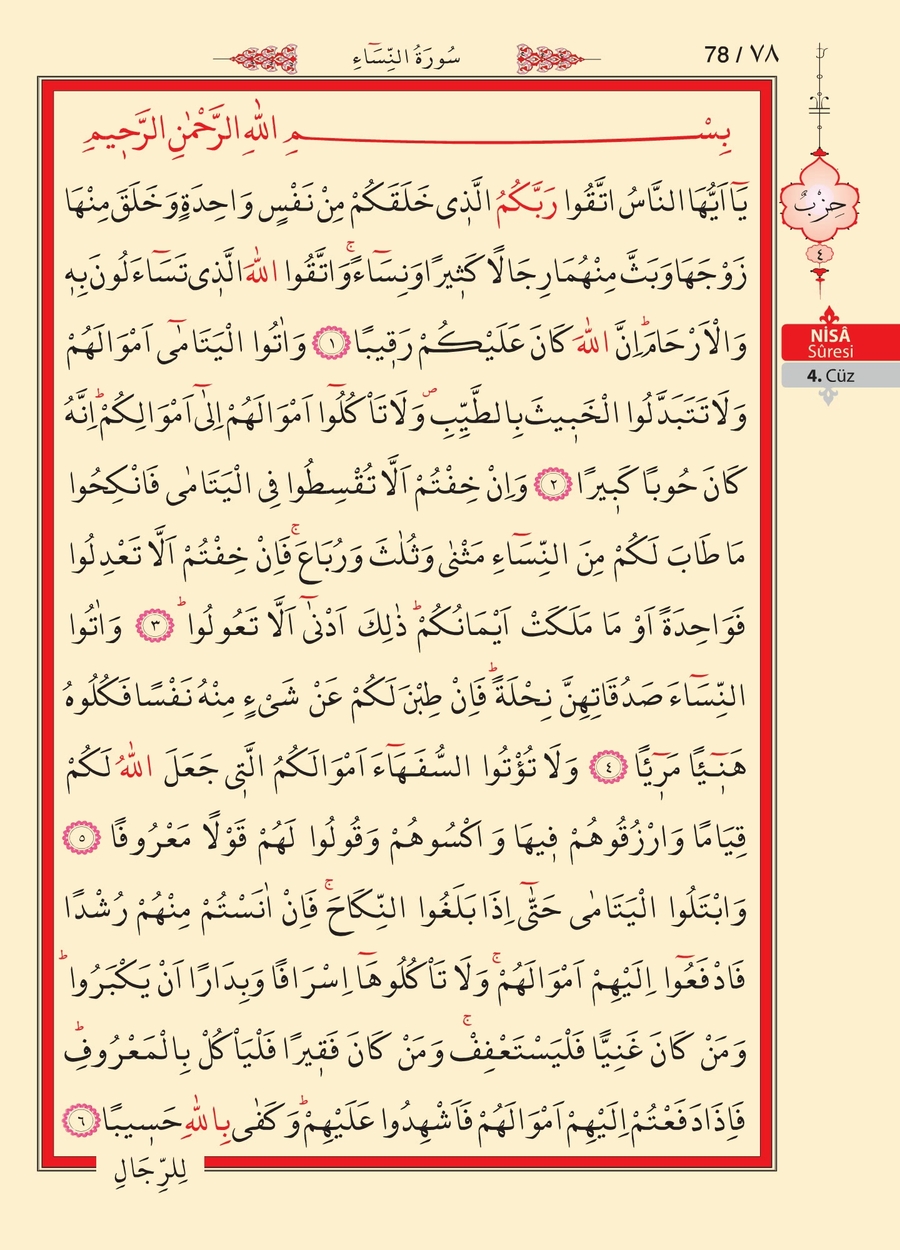 سُورَةُ النِّسَٓاءِ
78 / ٧٨
بِسْمِ اللّٰهِ الرَّحْمٰنِ الرَّحٖيمِ
يَٓا اَيُّهَا النَّاسُ اتَّقُوا رَبَّكُمُ الَّذٖى خَلَقَكُمْ مِنْ نَفْسٍ وَاحِدَةٍ وَخَلَقَ مِنْهَا
زَوْجَهَا وَبَثَّ مِنْهُمَا رِجَالًا كَثٖيرًا وَنِسَٓاءًۚ وَاتَّقُوا اللّٰهَ الَّذٖى تَسَٓاءَلُونَ بِهٖ
وَالْاَرْحَامَؕ اِنَّ اللّٰهَ كَانَ عَلَيْكُمْ رَقٖيبًا ١ وَاٰتُوا الْيَتَامٰٓى اَمْوَالَهُمْ
وَلَا تَتَبَدَّلُوا الْخَبٖيثَ بِالطَّيِّبِۖ وَلَا تَاْكُلُٓوا اَمْوَالَهُمْ اِلٰٓى اَمْوَالِكُمْؕ اِنَّهُ
كَانَ حُوبًا كَبٖيرًا ٢ وَاِنْ خِفْتُمْ اَلَّا تُقْسِطُوا فِى الْيَتَامٰى فَانْكِحُوا
مَا طَابَ لَكُمْ مِنَ النِّسَٓاءِ مَثْنٰى وَثُلٰثَ وَرُبَاعَۚ فَاِنْ خِفْتُمْ اَلَّا تَعْدِلُوا
فَوَاحِدَةً اَوْ مَا مَلَكَتْ اَيْمَانُكُمْؕ ذٰلِكَ اَدْنٰٓى اَلَّا تَعُولُواؕ ٣ وَاٰتُوا
النِّسَٓاءَ صَدُقَاتِهِنَّ نِحْلَةًؕ فَاِنْ طِبْنَ لَكُمْ عَنْ شَىْءٍ مِنْهُ نَفْسًا فَكُلُوهُ
هَنٖٓيـًٔا مَرٖٓيـًٔا ٤ وَلَا تُؤْتُوا السُّفَهَٓاءَ اَمْوَالَكُمُ الَّتٖى جَعَلَ اللّٰهُ لَكُمْ
قِيَامًا وَارْزُقُوهُمْ فٖيهَا وَاكْسُوهُمْ وَقُولُوا لَهُمْ قَوْلًا مَعْرُوفًا ٥
وَابْتَلُوا الْيَتَامٰى حَتّٰٓى اِذَا بَلَغُوا النِّكَاحَۚ فَاِنْ اٰنَسْتُمْ مِنْهُمْ رُشْدًا
فَادْفَعُٓوا اِلَيْهِمْ اَمْوَالَهُمْۚ وَلَا تَاْكُلُوهَٓا اِسْرَافًا وَبِدَارًا اَنْ يَكْبَرُواؕ
وَمَنْ كَانَ غَنِيًّا فَلْيَسْتَعْفِفْۚ وَمَنْ كَانَ فَقٖيرًا فَلْيَاْكُلْ بِالْمَعْرُوفِؕ
فَاِذَا دَفَعْتُمْ اِلَيْهِمْ اَمْوَالَهُمْ فَاَشْهِدُوا عَلَيْهِمْؕ وَكَفٰى بِاللّٰهِ حَسٖيبًا ٦
لِلرِّجَالِ
حِزْبٌ
٤
NİSÂ
Sûresi
4. Cüz